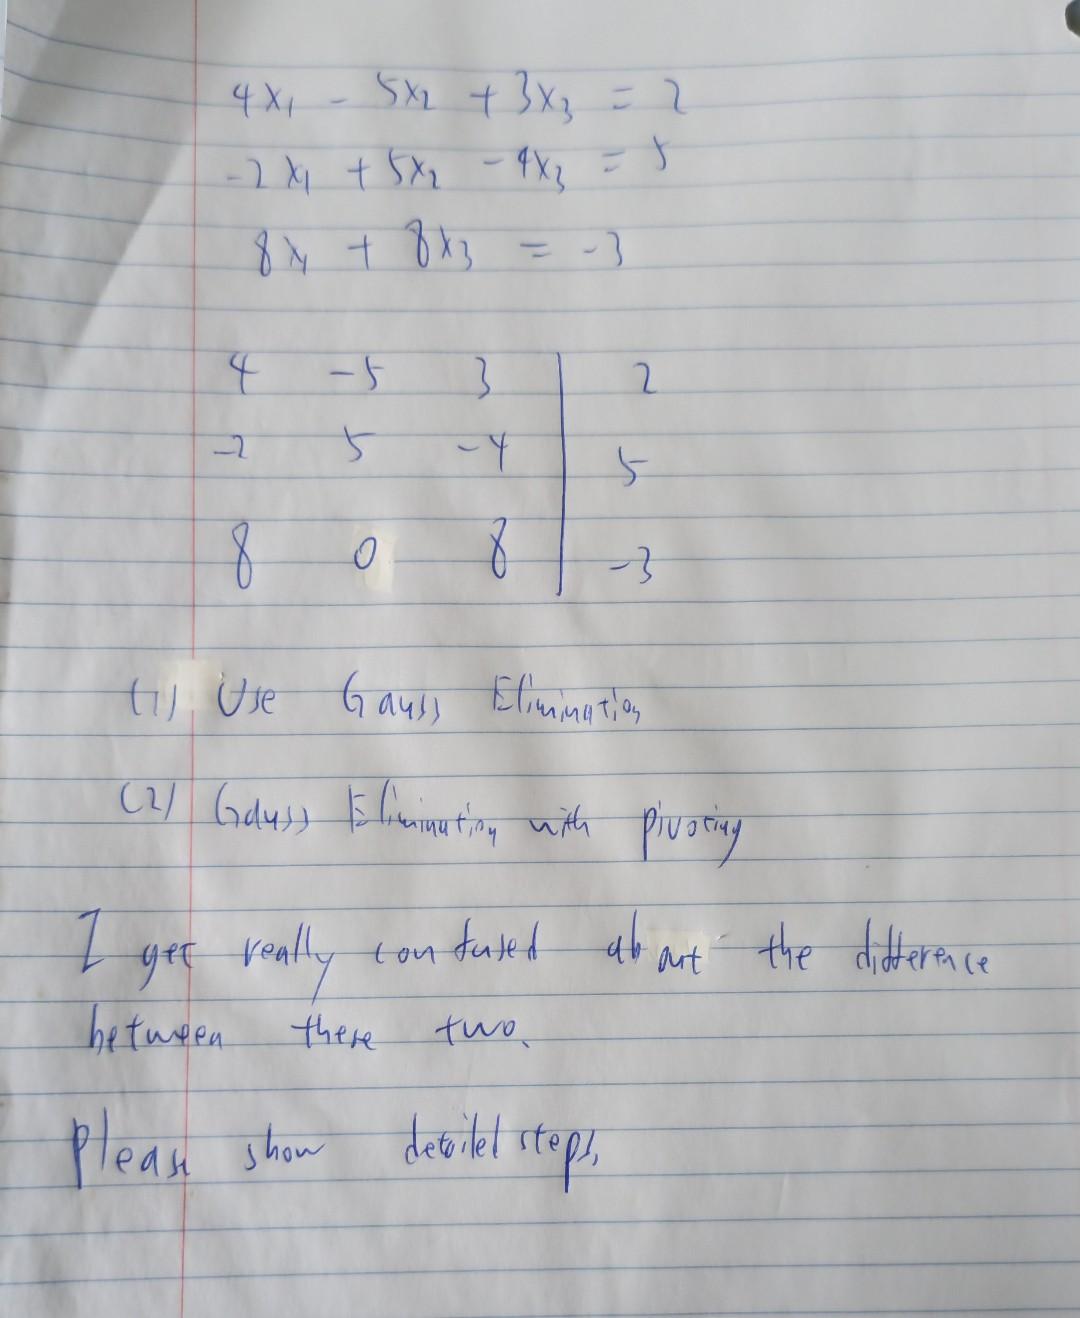 4x₁ - 5x₂ + 3x₃ = 2
-2x₁ + 5x₂ - 4x₃ = 5
8x₁ + 8x₃ = -3
4 -5 3 | 2
-2 5 -4 | 5
8 0 8 | -3
(1) Use Gauss Elimination
(2) Gauss Elimination with pivoting
I get really confused about the difference
between these two.
Please show detailed steps.